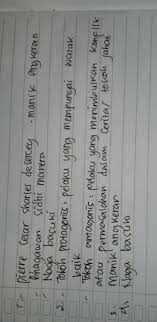 1. - Pierre Cesar skories delancey - manik angkeran
- Bhagawan Sidhi mantra
- Naga basuki
2. Tokoh protagonis : pelaku yang mempunyai watak
baik
Tokoh antagonis : pelaku yang menimbulkan konflik
atau permasalahan dalam cerita/ tokoh jahat
3. Manik angkeran
4. Naga basuki